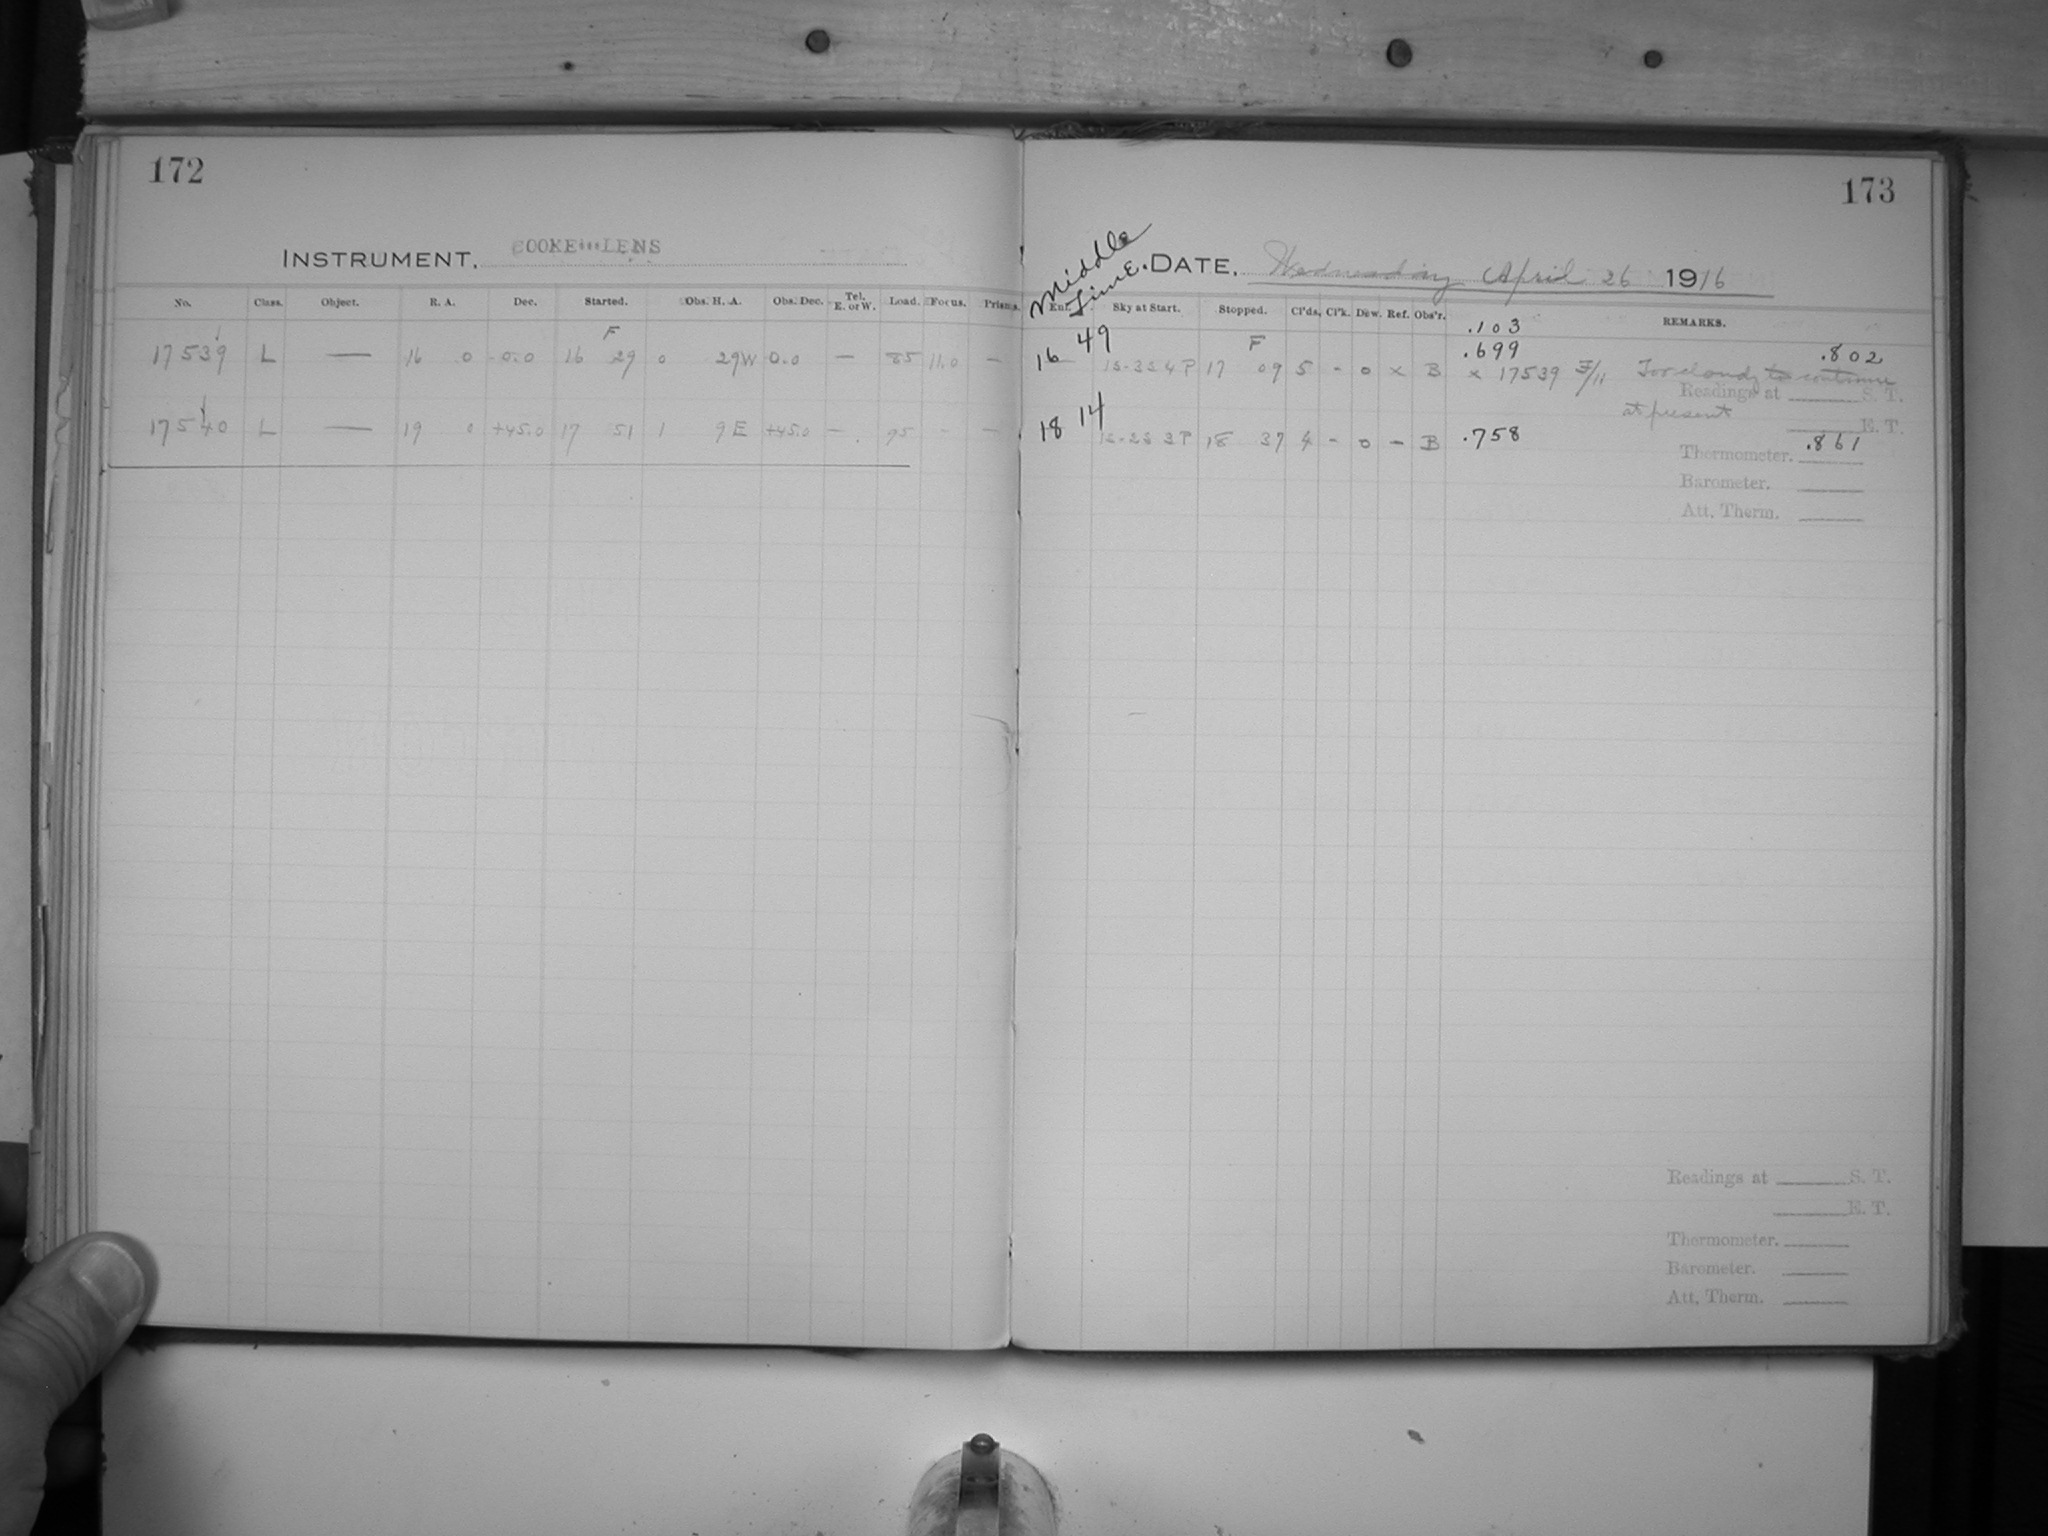 172
INSTRUMENT. COOKE LENS
No. Class. Object. R. A. Dec. Started. Obs. H. A. Obs. Dec. Tel. E. or W. Load. Focus. Prisms.
F
17539 L — 16 0 0.0 16 29 0 29W 0.0 — 85 11.0 —
17540 L — 19 0 +45.0 17 51 1 9E +45.0 — 95 - —
173
Middle Time.
DATE. Wednesday April 26 1916
Sky at Start. Stopped. Cl'ds. Cl'k. Dew. Ref. Obs'r. REMARKS.
.103
16 49 F .699 .802
17 09 5 - 0 x B x 17539 F/11 Too cloudy to continue
Readings at S. T.
at present
18 14 E. T.
18 37 4 - 0 - B .758 .861
Thermometer.
Barometer.
Att. Therm.
Readings at S. T.
E. T.
Thermometer.
Barometer.
Att. Therm.